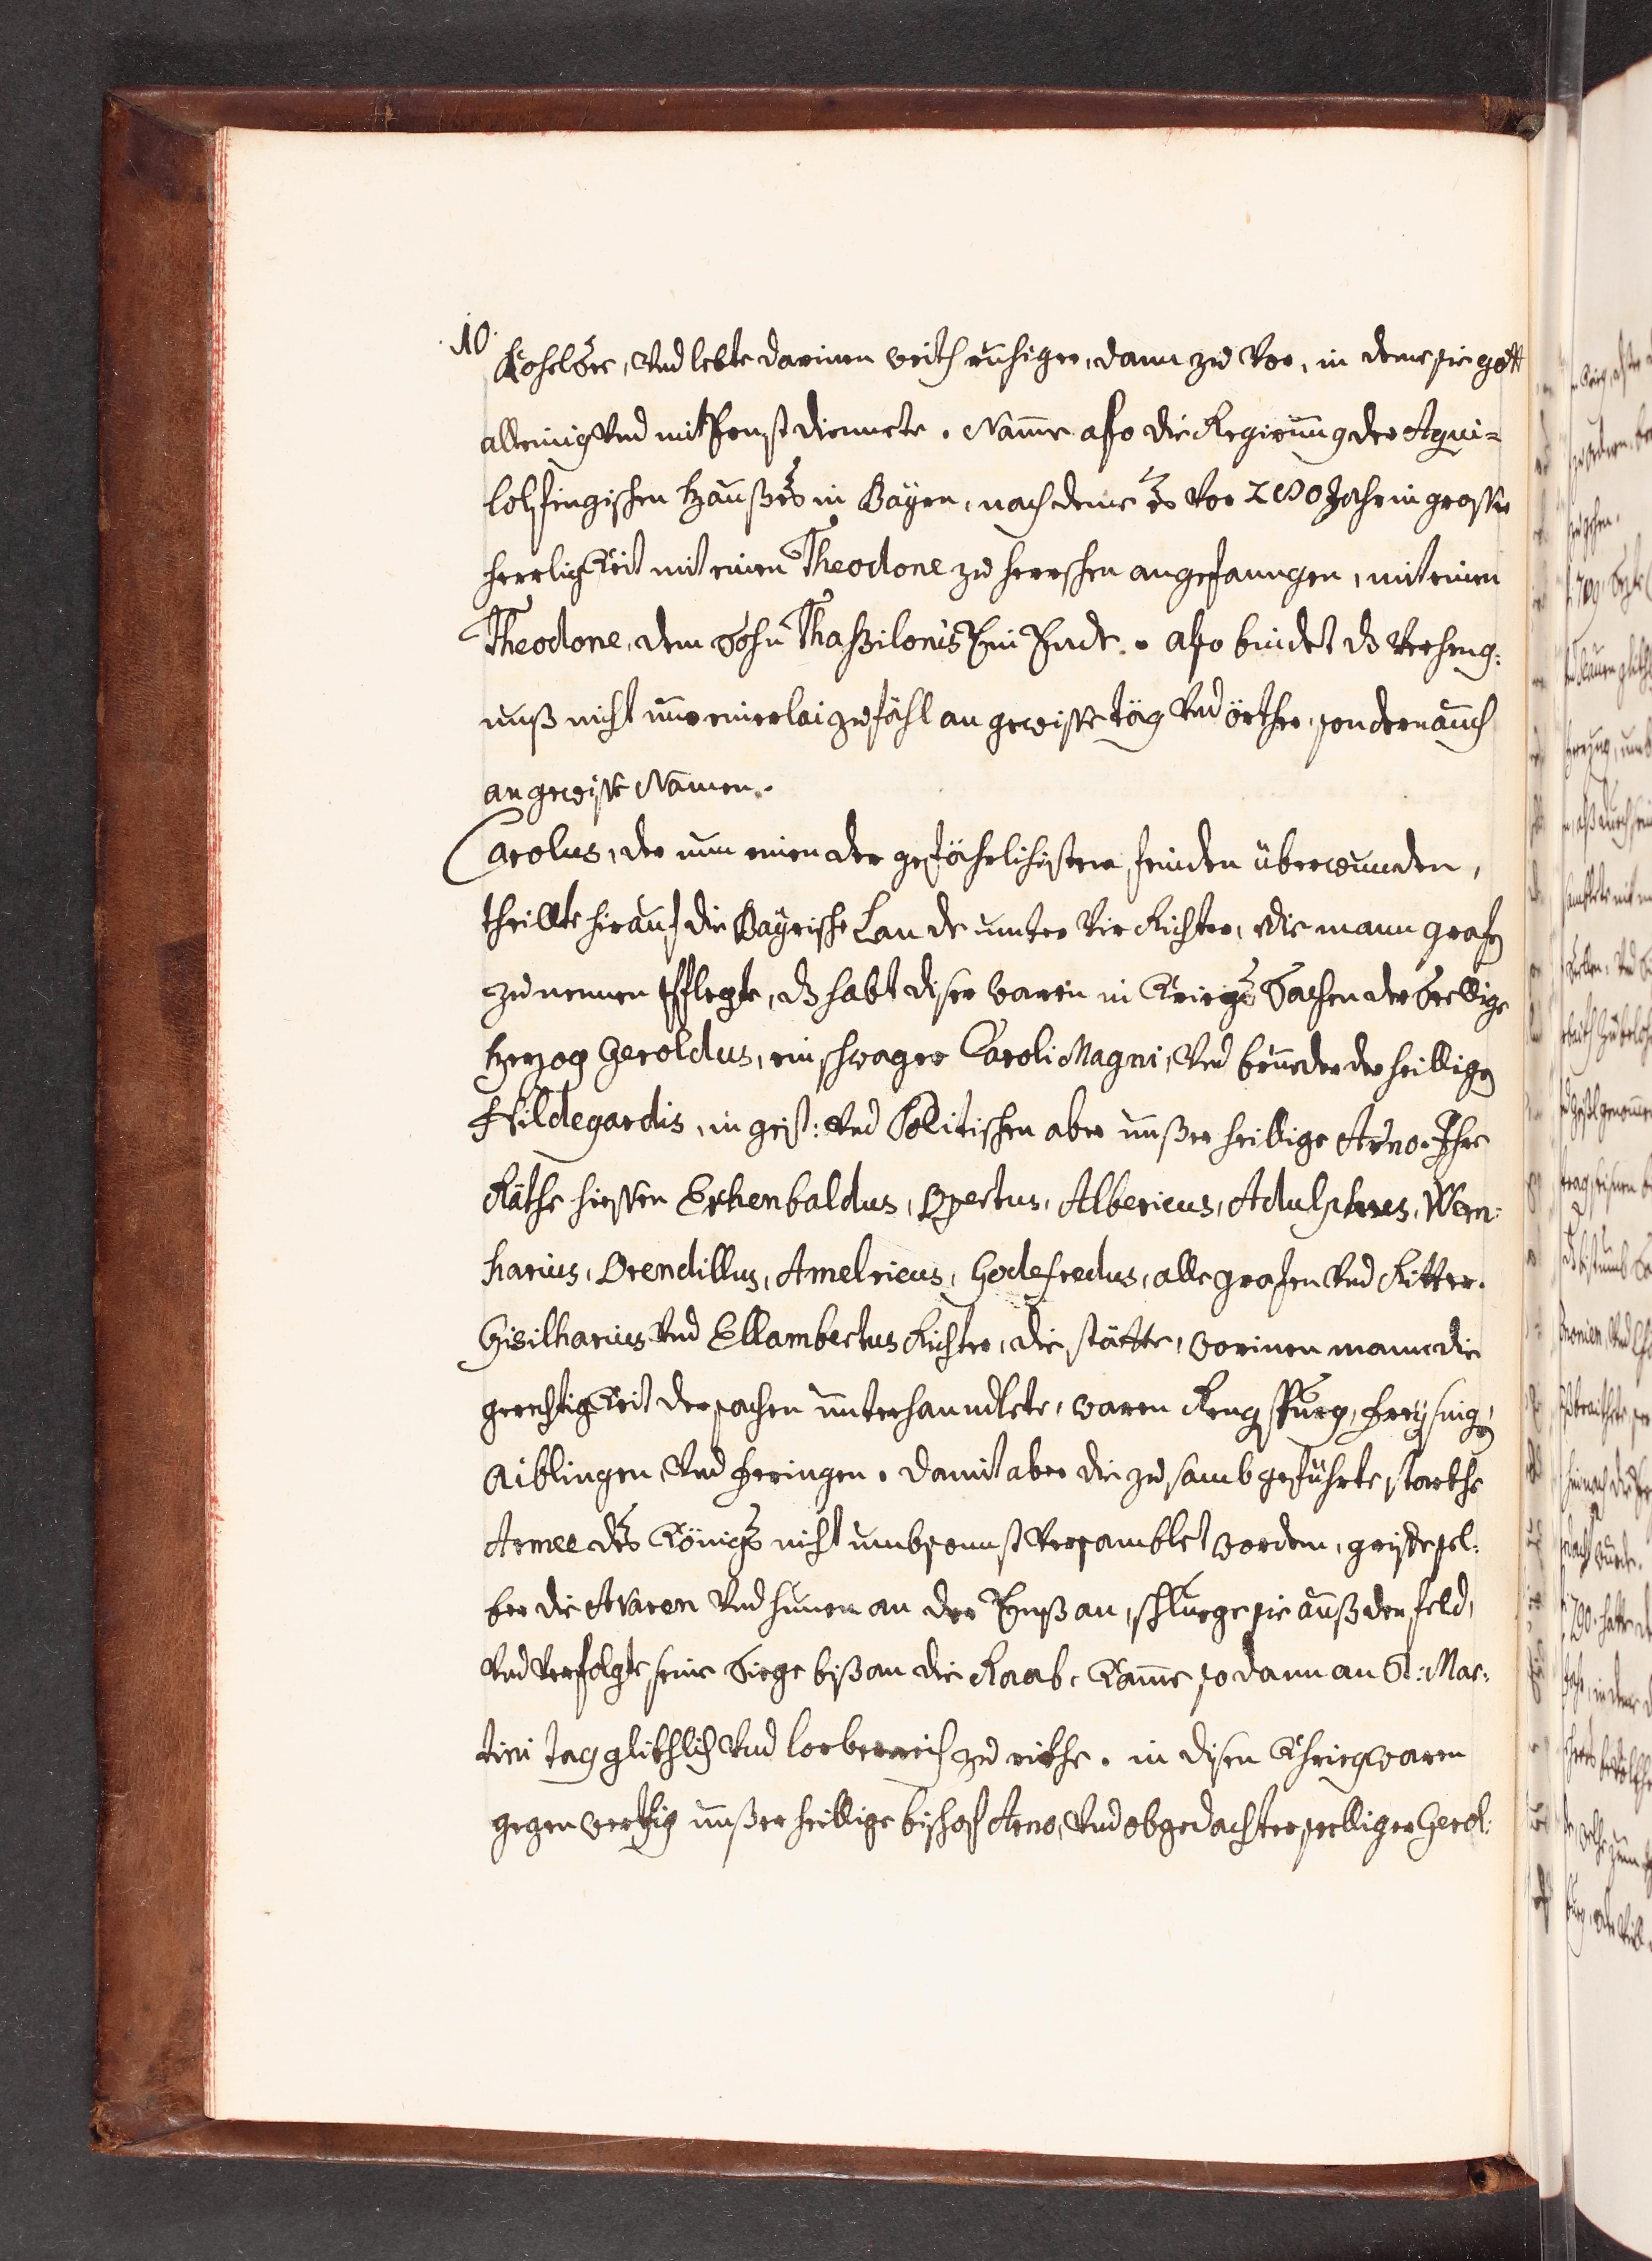 10.
Kochelsee, Vnd lebte darinen weith ruhiger, dann zu Vor, in deme sie gott
alleinig Vnd mit Ernst dienncte. Namme also die Regierung des Agni=
lolfingischen Haußes in Bayrn, nach deme es Vor 200 Jahr in grosser
herrligkeit mit einen Theodone zu herrschen angefanngen, mit einen
Theodone, dem Sohn Thaßilonis Ein Ende. also bindet ds Verheng:
nuß nicht nur einerlai zufähl an gewisse täg Vnd örther, sondern auch
an gewisse Namen.
Carolus, der nun einen der gefährlichisten feinden überwunden,
theillte hirauf die Bayrische Lande unter Vir Richter, die mann grafen
zu nennen Pflegte, ds habt diser waren in Kriegs Sachen der Seelige
Herzog Geroldus, ein schwager Caroli Magni, Vnd brueder der heiligen
Hildegardis, in geist: Vnd Politischen aber unßer heillige Arno. Ihre
Räthe hiessen Erkenbaldus, Opertus, Albericus, Adulphus, Wern:
harius, Orendillus, Amelricus, Godefredus, alle grafen Vnd Ritter.
Gisilharius Vnd Ellambertus Richter, die stätte, worinen mann die
gerechtigkeit der sachen unterhanndlete, waren Rengspurg, Freysing,
Aiblingen, Vnd Feringen. damit aber die zusamb geführte starkhe
Armee des Königs nicht umbsonnst Versamblet worden, grifte sel:
ber die Avaren Vnd hunen an der Ennß an, schluege sie auß den feld,
Vnd Verfolgte seine Siege biß an die Raab, Kamme so dann an St: Mar:
tini tag glikhlich Vnd lorberreich zu rikhe. in disen Khrieg waren
gegenwertig unßer heillige bischof Arno, Vnd obgedachter seelliger Gerol: